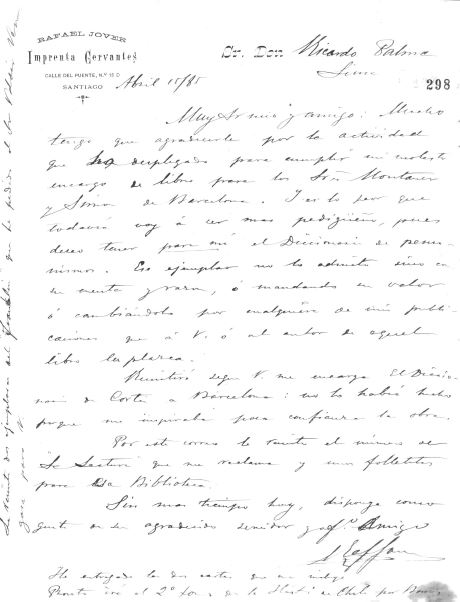 RAFAEL JOVER
Imprenta Cervantes
CALLE DEL PUENTE, N.º 15 D
SANTIAGO
Abril 15/85
Sr. Don Ricardo Palma
Lima
298
Muy Sr mio y amigo: Mucho
tengo que agradecerle por la actividad
que ha desplegado para cumplir mi molesto
encargo de libros para los Srs Montaner
y Simon de Barcelona. I es lo peor que
todavia voy á ser mas pedigüeño, pues
deseo tener para mí el Diccionario de peruanismos. Ese ejemplar no lo admito sino en
su cuenta, ó mandando su valor
ó cambiándolo por cualquiera de mis publicaciones que á V. ó al autor de aquel
libro le plazca.
Remitiré segun V. me encarga el Diccionario de Corte á Barcelona: no lo habia hecho
porque me inspiraba poca confianza la obra.
Por este correo le remito el número de
"La Lectura" que me reclama y unos folletitos
para la Biblioteca.
Sin mas tiempo hoy, disponga como
guste de su agradecido servidor y afº. Amigo
R Jover
He entregado las dos cartas que me
Pronto irá el 2º tomo de la Histª de Chile por Barros
Le remito dos ejemplares del que ha pedido el
para V.